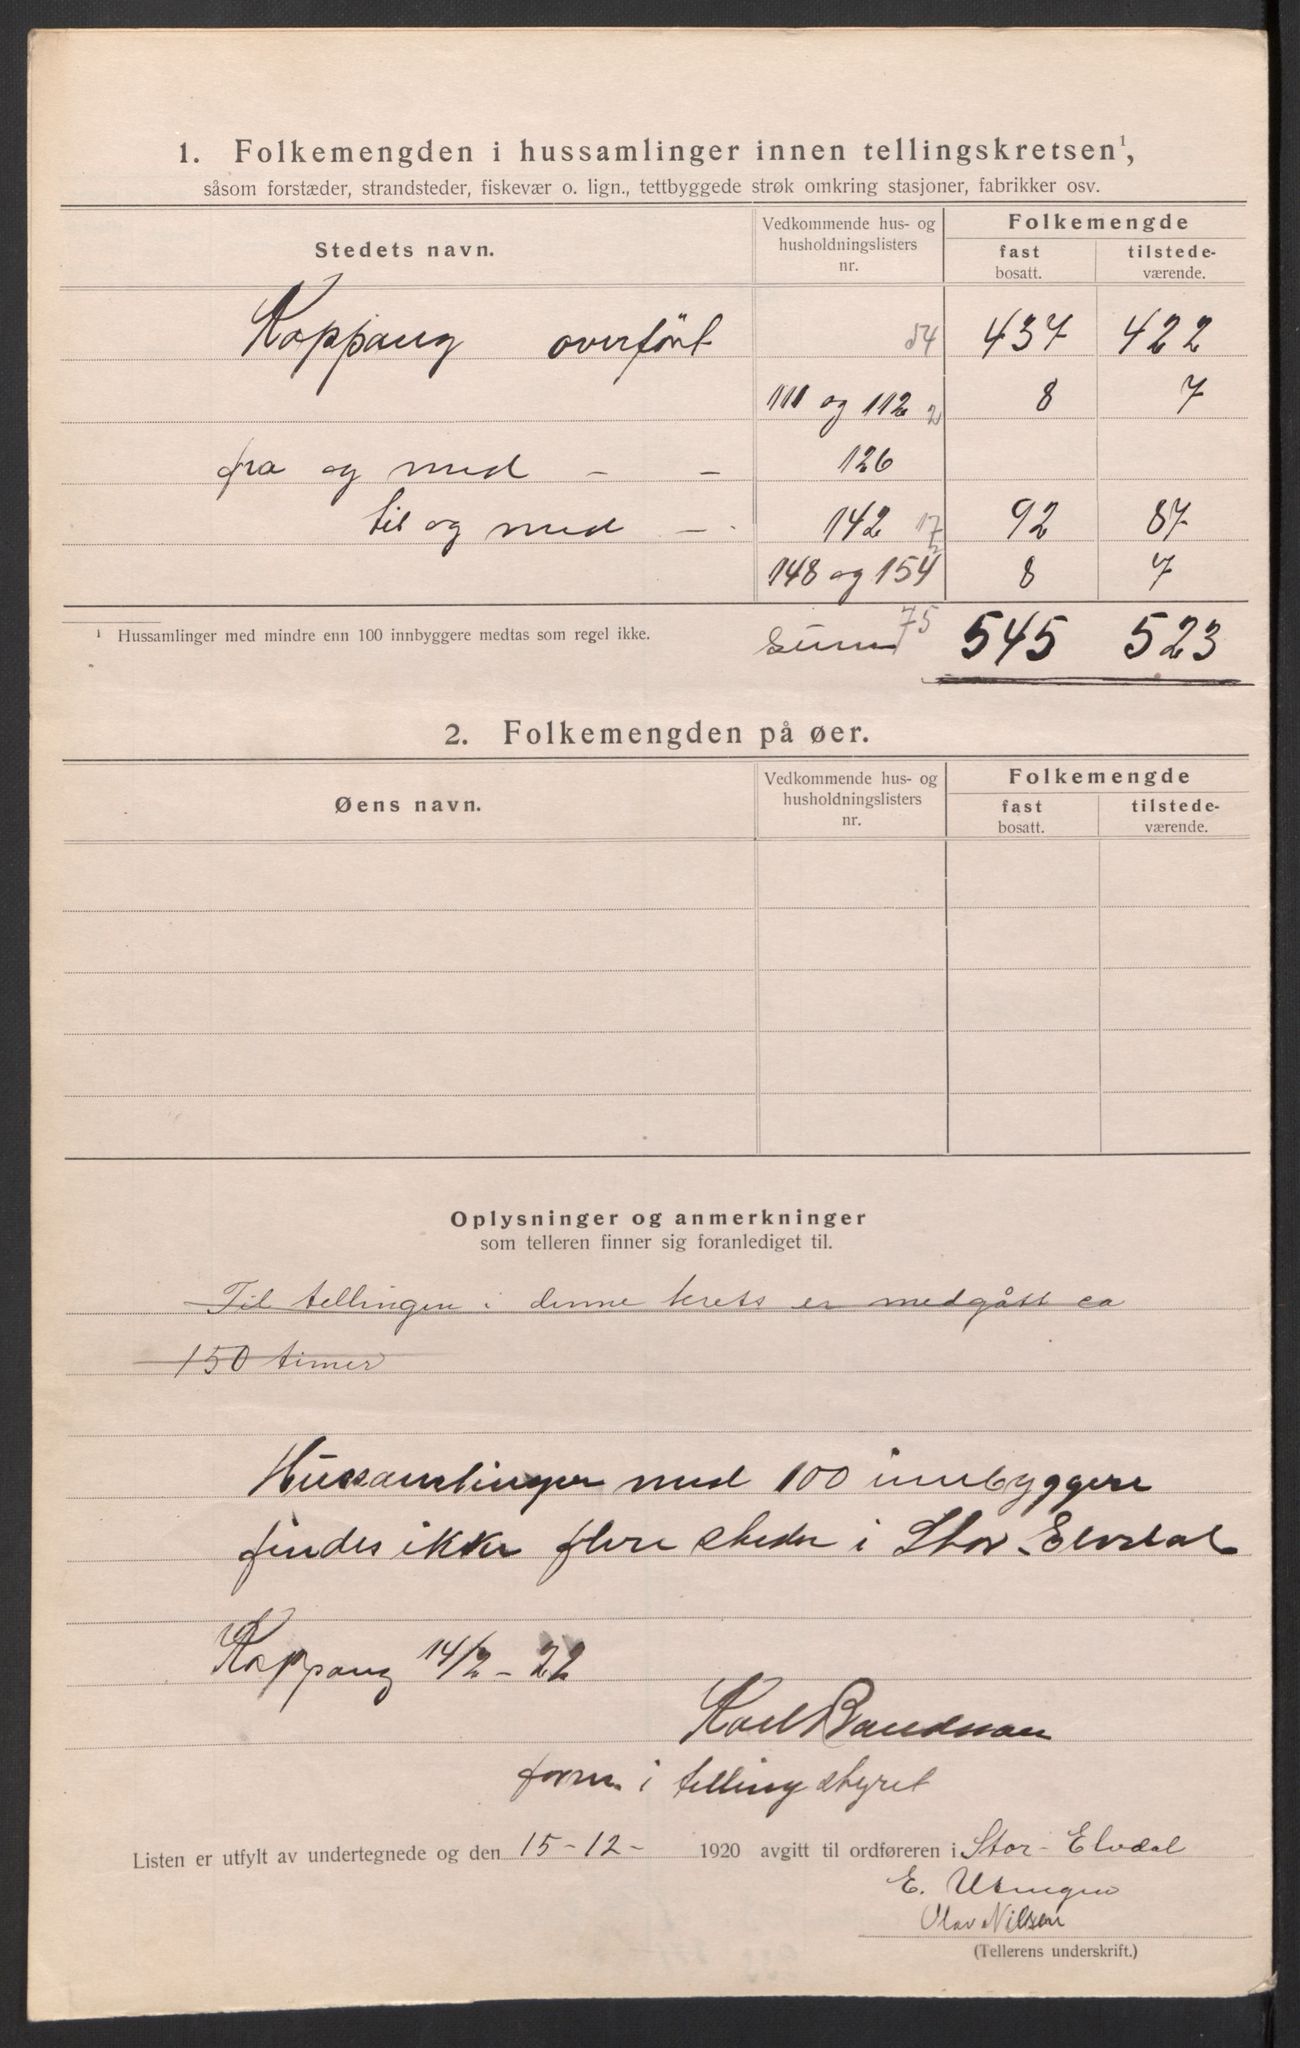 1. Folkemengden i hussamlinger innen tellingskretsen¹,
såsom forstæder, strandsteder, fiskevær o. lign., tettbyggede strøk omkring stasjoner, fabrikker osv.
Stedets navn.
Vedkommende hus- og
husholdningslisters
nr.
Folkemengde
fast
bosatt.
tilstede-
værende.
Koppang overført 54 437 422
111 og 112 2 8 7
fra og med - - 126
til og med - - 142 17 92 87
148 og 154 2 8 7
¹ Hussamlinger med mindre enn 100 innbyggere medtas som regel ikke.
Sum 75 545 523
2. Folkemengden på øer.
Øens navn.
Vedkommende hus- og
husholdningslisters
nr.
Folkemengde
fast
bosatt.
tilstede-
værende.
Oplysninger og anmerkninger
som telleren finner sig foranlediget til.
Til tellingen i denne krets er medgått ca
150 timer
Hussamlinger med 100 innbyggere
findes ikke flere steder i Stor-Elvdal
Koppang 14/2 - 22
Karl
form i telling styret
Listen er utfylt av undertegnede og den 15-12- 1920 avgitt til ordføreren i Stor-Elvdal
E.
Olav Nilsen
(Tellerens underskrift.)